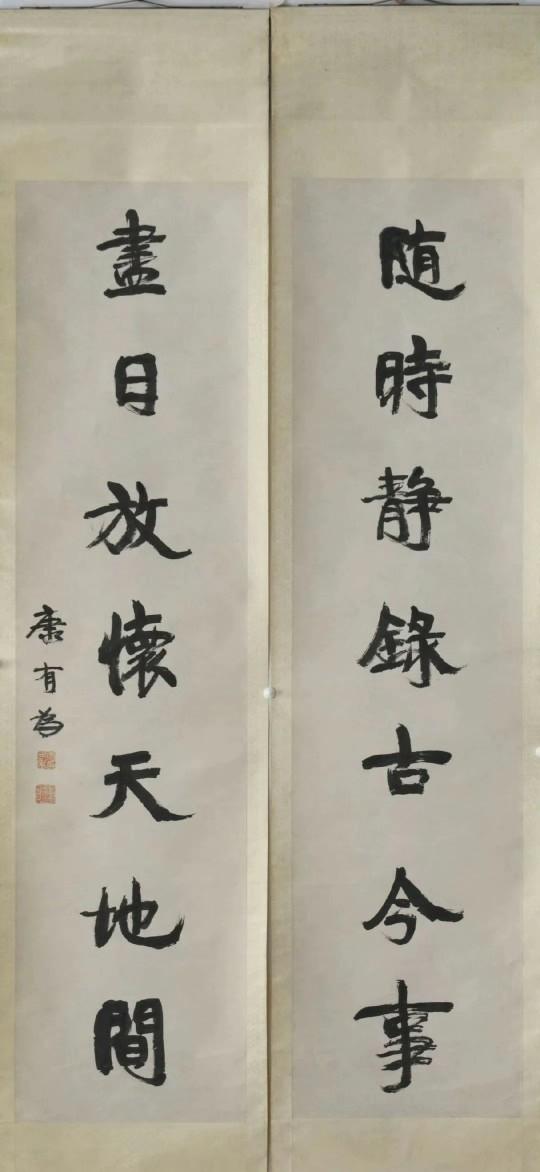 随時静錄古今事
盡日放懷天地間
康有為